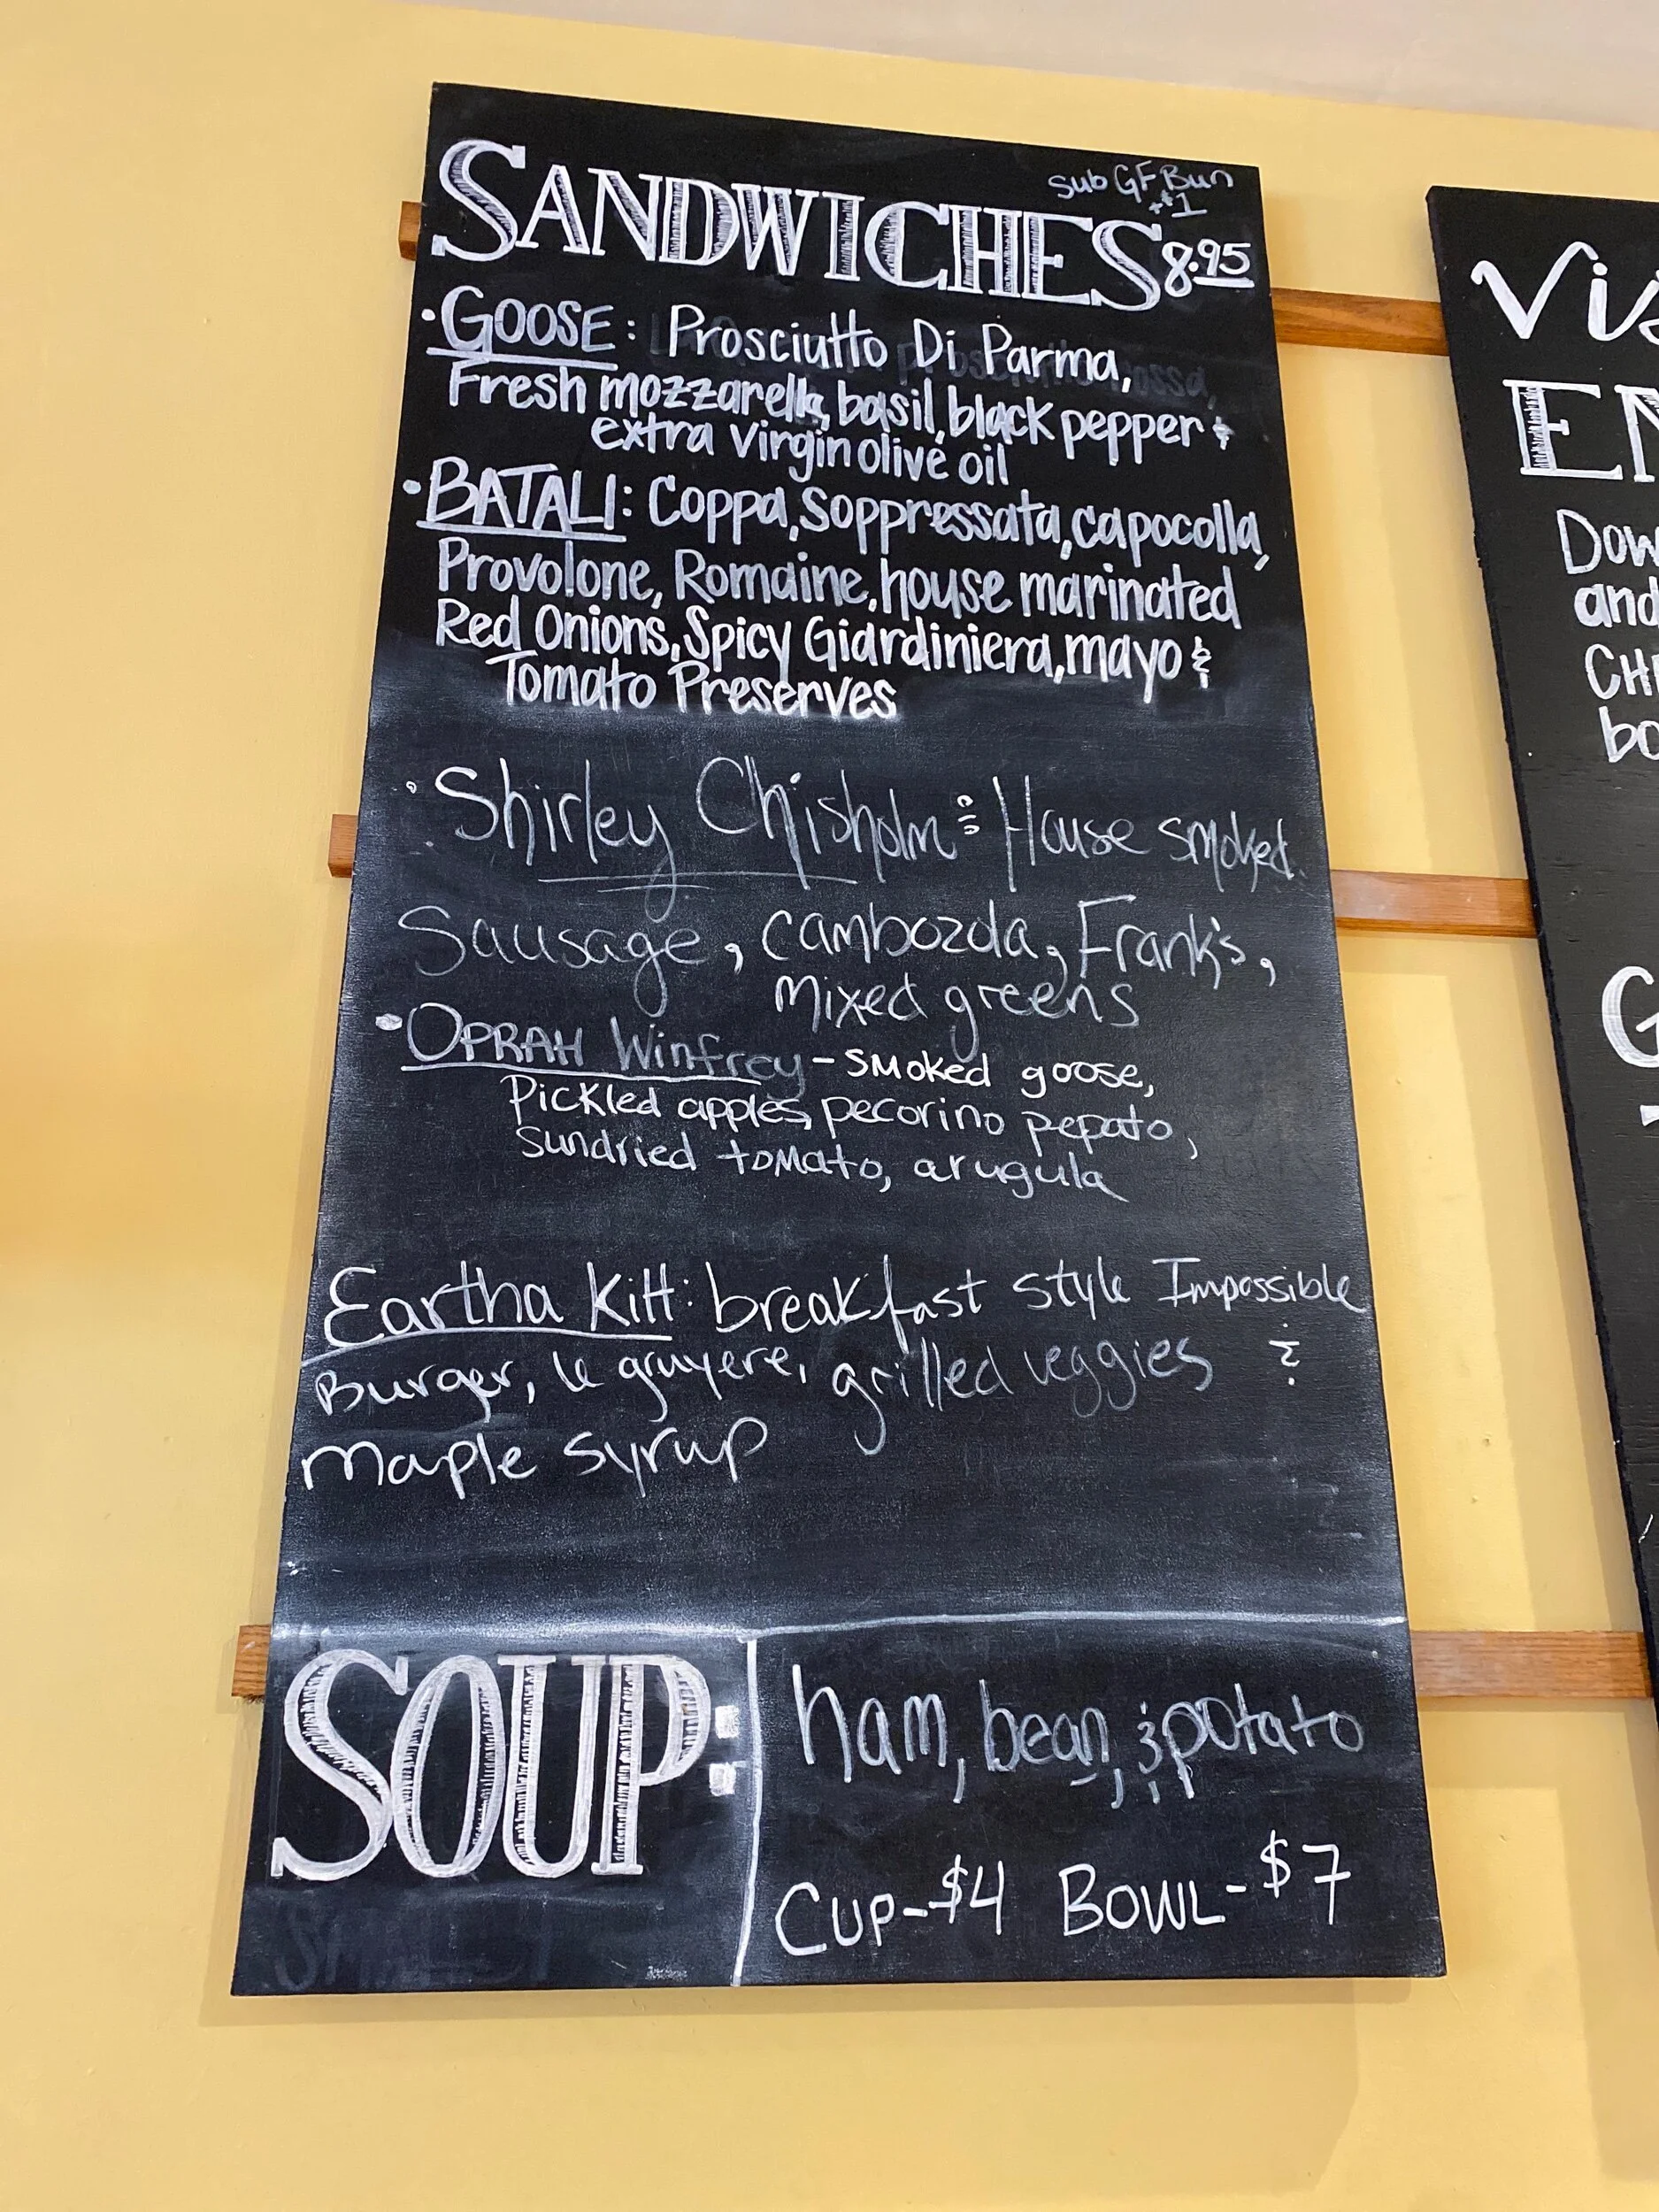 sub GF Bun
+$1
SANDWICHES 8.95
• GOOSE: Prosciutto Di Parma,
Fresh mozzarella, basil, black pepper &
extra virgin olive oil
• BATALI: Coppa, Soppressata, capocolla,
Provolone, Romaine, house marinated
Red Onions, Spicy Giardiniera, mayo &
Tomato Preserves
• Shirley Chisholm: House smoked
Sausage, cambozola, Frank's,
mixed greens
• OPRAH Winfrey - smoked goose,
Pickled apples, pecorino pepato,
sundried tomato, arugula
Eartha Kitt: breakfast style Impossible
Burger, le gruyere, grilled veggies &
maple syrup
SOUP:
ham, bean, & potato
CUP-$4 BOWL-$7
Dow
and
bo